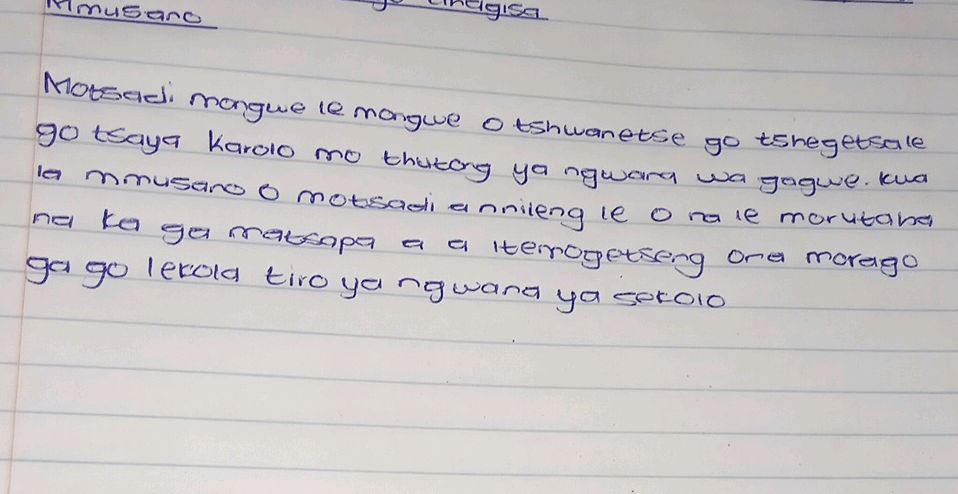 Mmusano
Motsadi mongwe le mongwe o tshwanetse go tshegetsa le
go tsaya Karolo mo thutong ya ngwana wa gagwe. Kwa
la mmusano o motsadi a nnileng le o na le morutabana
na ka ga matsapa a a itemogetseng one morago
ga go lekola tiro ya ngwana ya sekolo